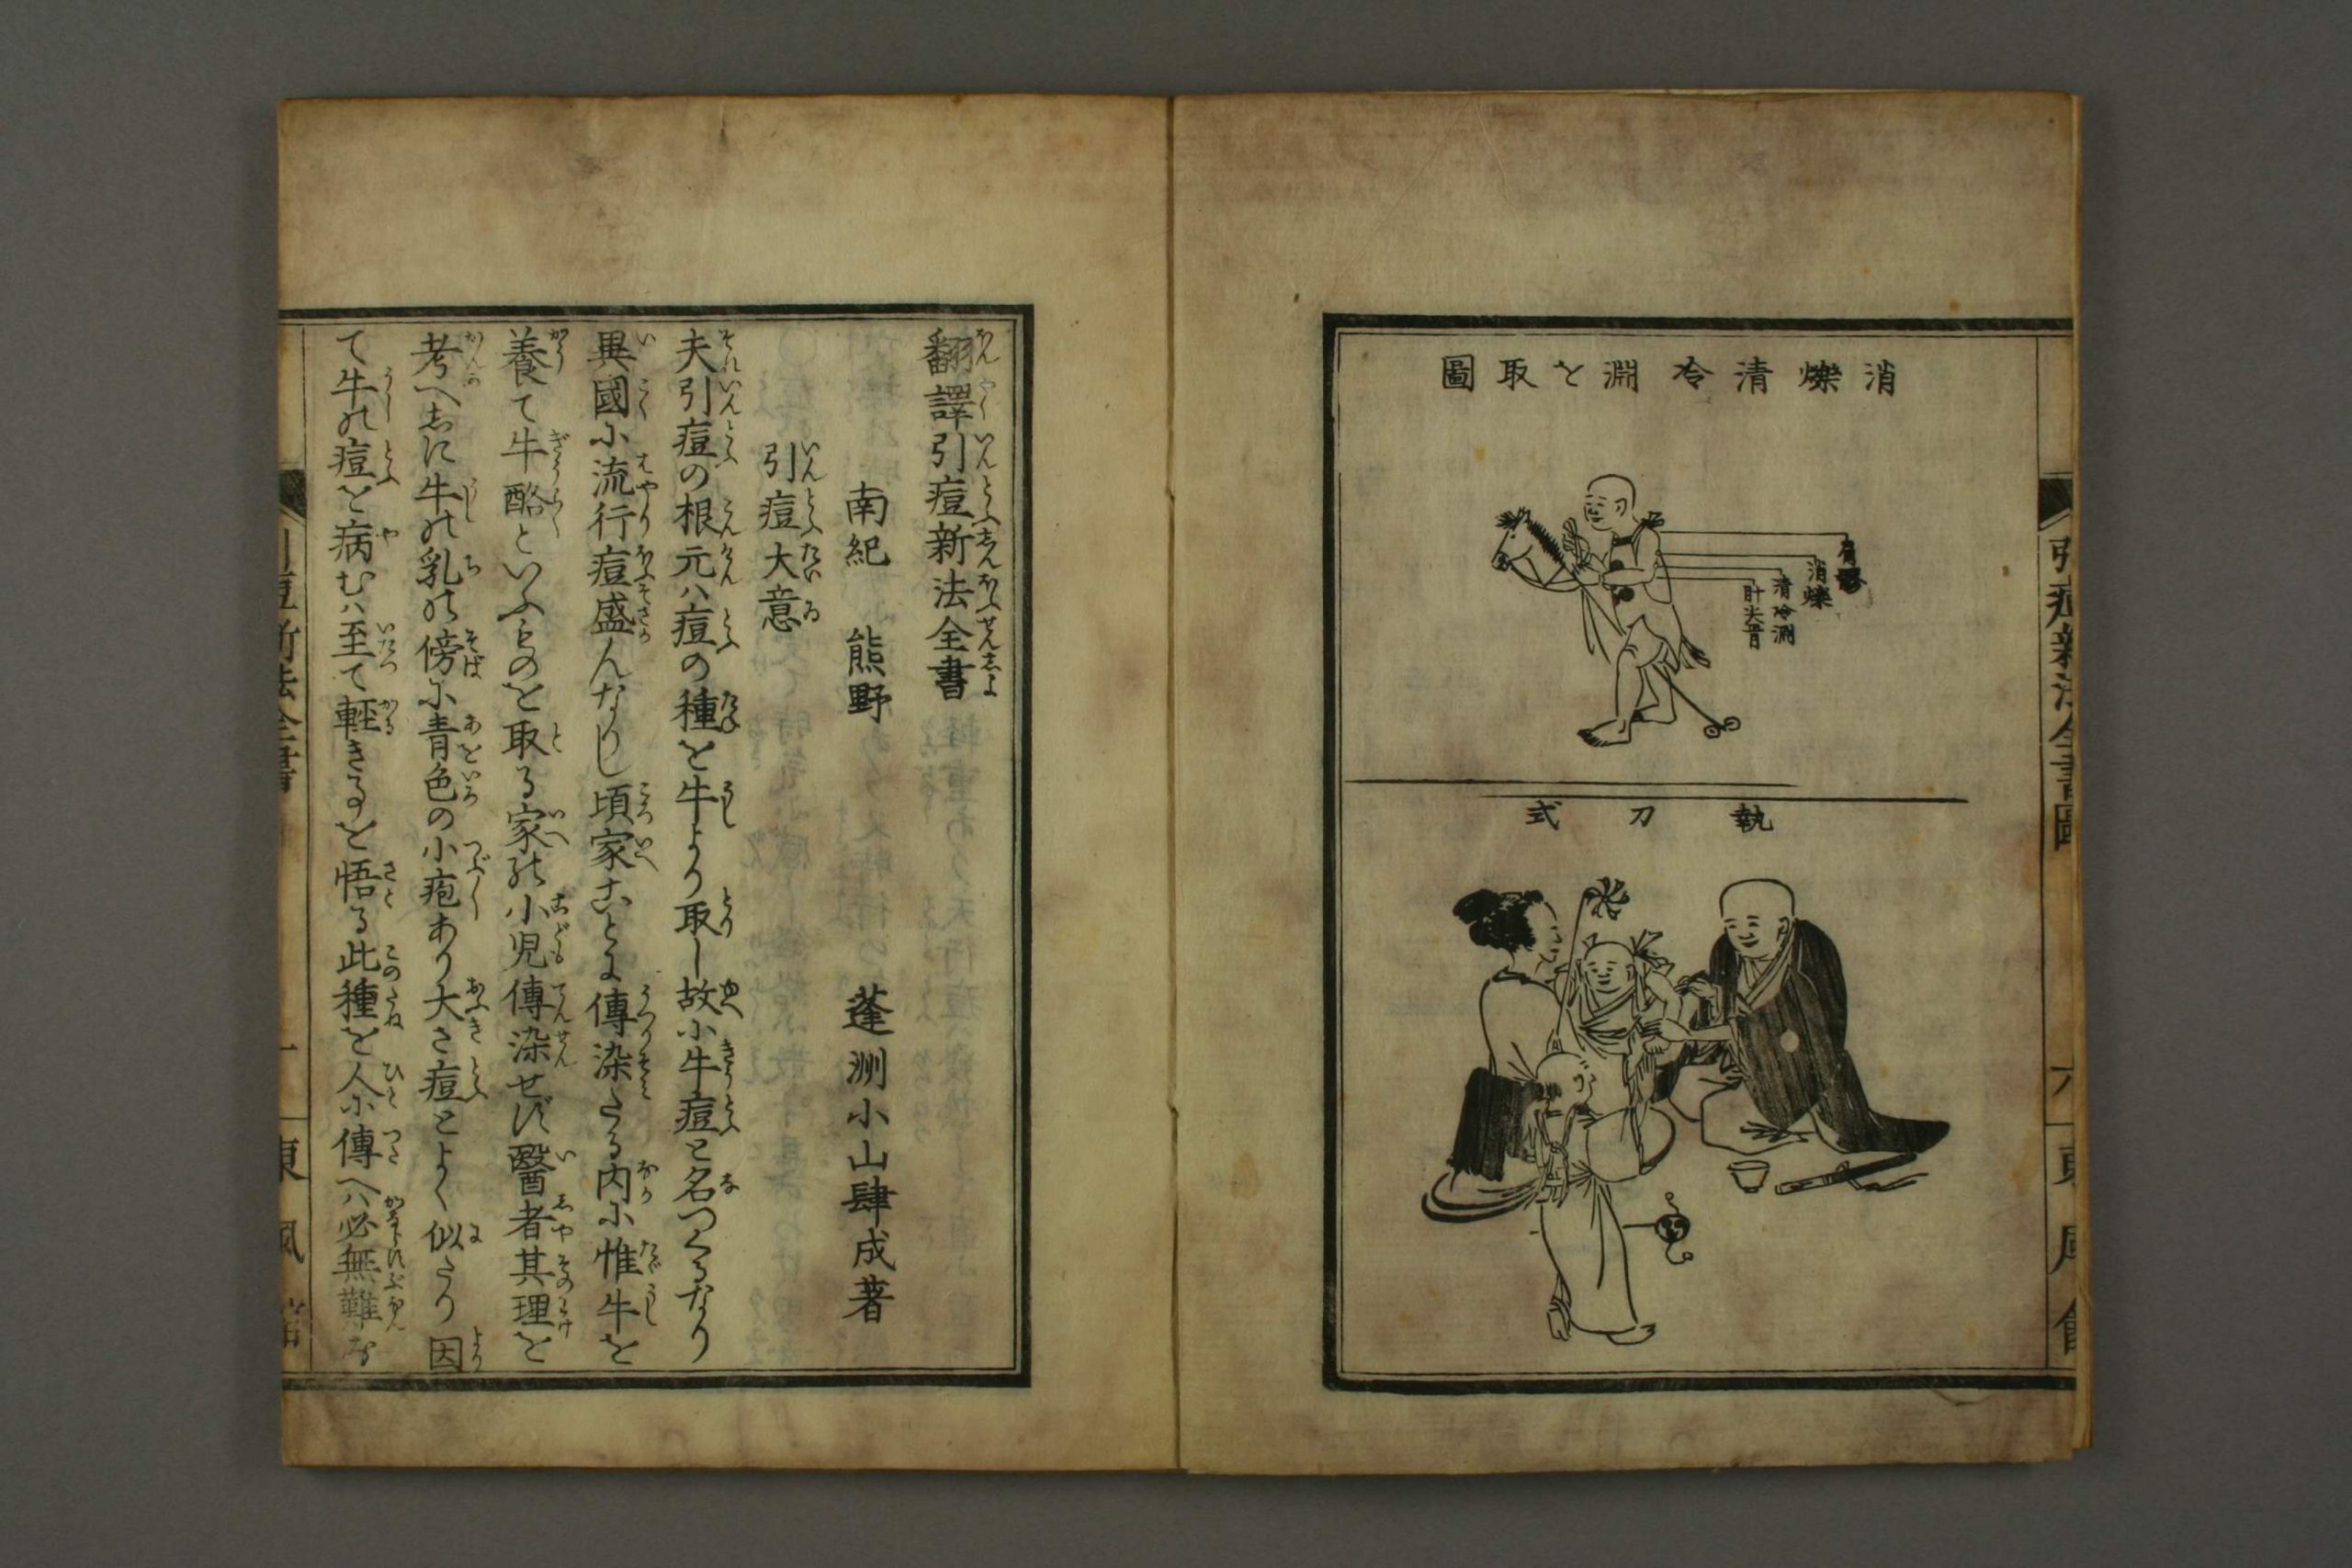 消爍清冷淵を取圖
肩
消爍
清冷淵
肘尖骨
執刀式
引痘新法全書圖
六
東風館
翻譯引痘新法全書
南紀 熊野 蓬洲小山肆成著
引痘大意
夫引痘の根元ハ痘の種を牛より取し故小牛痘と名つくるなり
異國小流行痘盛んなりし頃家ことに傳染たる内小惟牛を
養て牛酪といふものを取る家の小児傳染せず醫者其理を
考へしに牛の乳の傍小青色の小疱あり大さ痘とよく似たり因
て牛の痘を病むハ至て輕きるを悟る此種を人小傳へハ必無難な
引痘新法全書
一
東風館